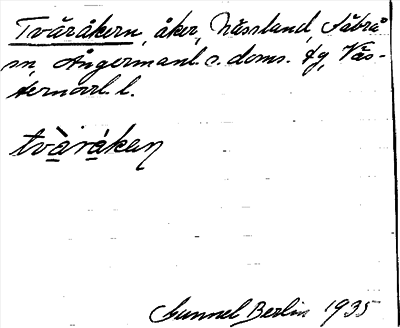 Tväråkern, åker, Nässland, Säbrå
sn, Ångermanl. s. doms. tg, Väs-
ternorrl. l.
tvàråken
Gunnel Berlin 1935